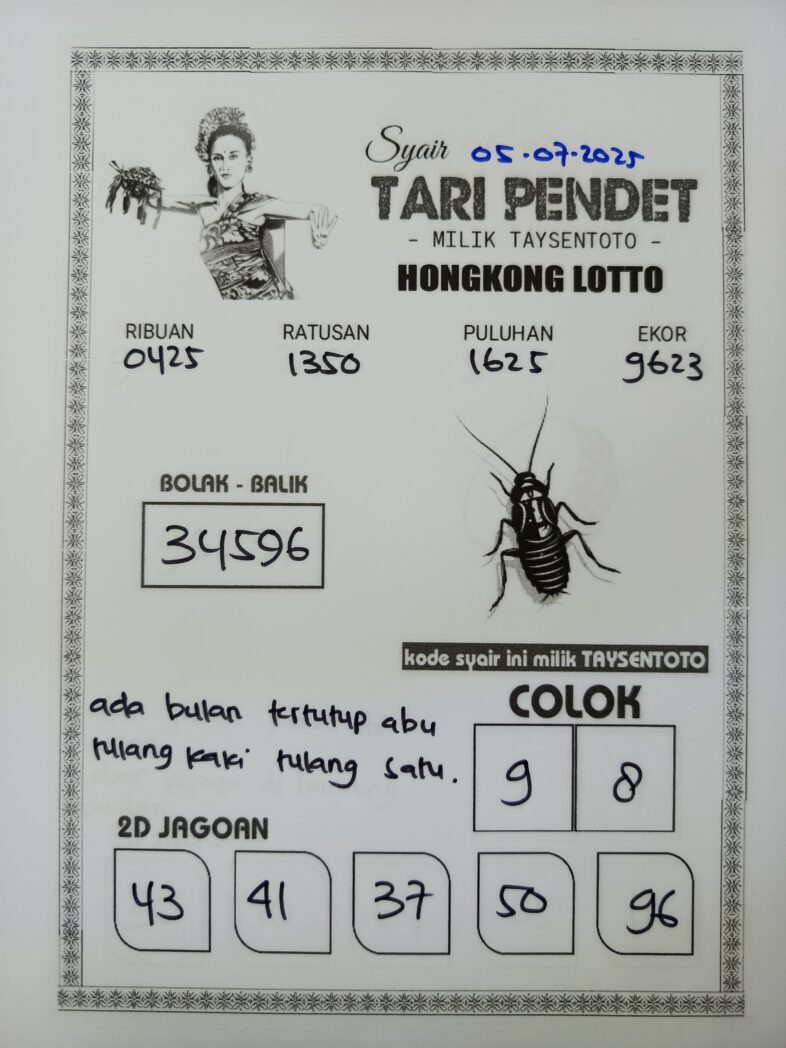 Syair 05.07.2025
TARI PENDET
- MILIK TAYSENTOTO -
HONGKONG LOTTO
RIBUAN RATUSAN PULUHAN EKOR
0425 1350 1625 9623
BOLAK - BALIK
34596
kode syair ini milik TAYSENTOTO
ada bulan tertutup abu
tulang kaki tulang satu.
COLOK
9 8
2D JAGOAN
43 41 37 50 96